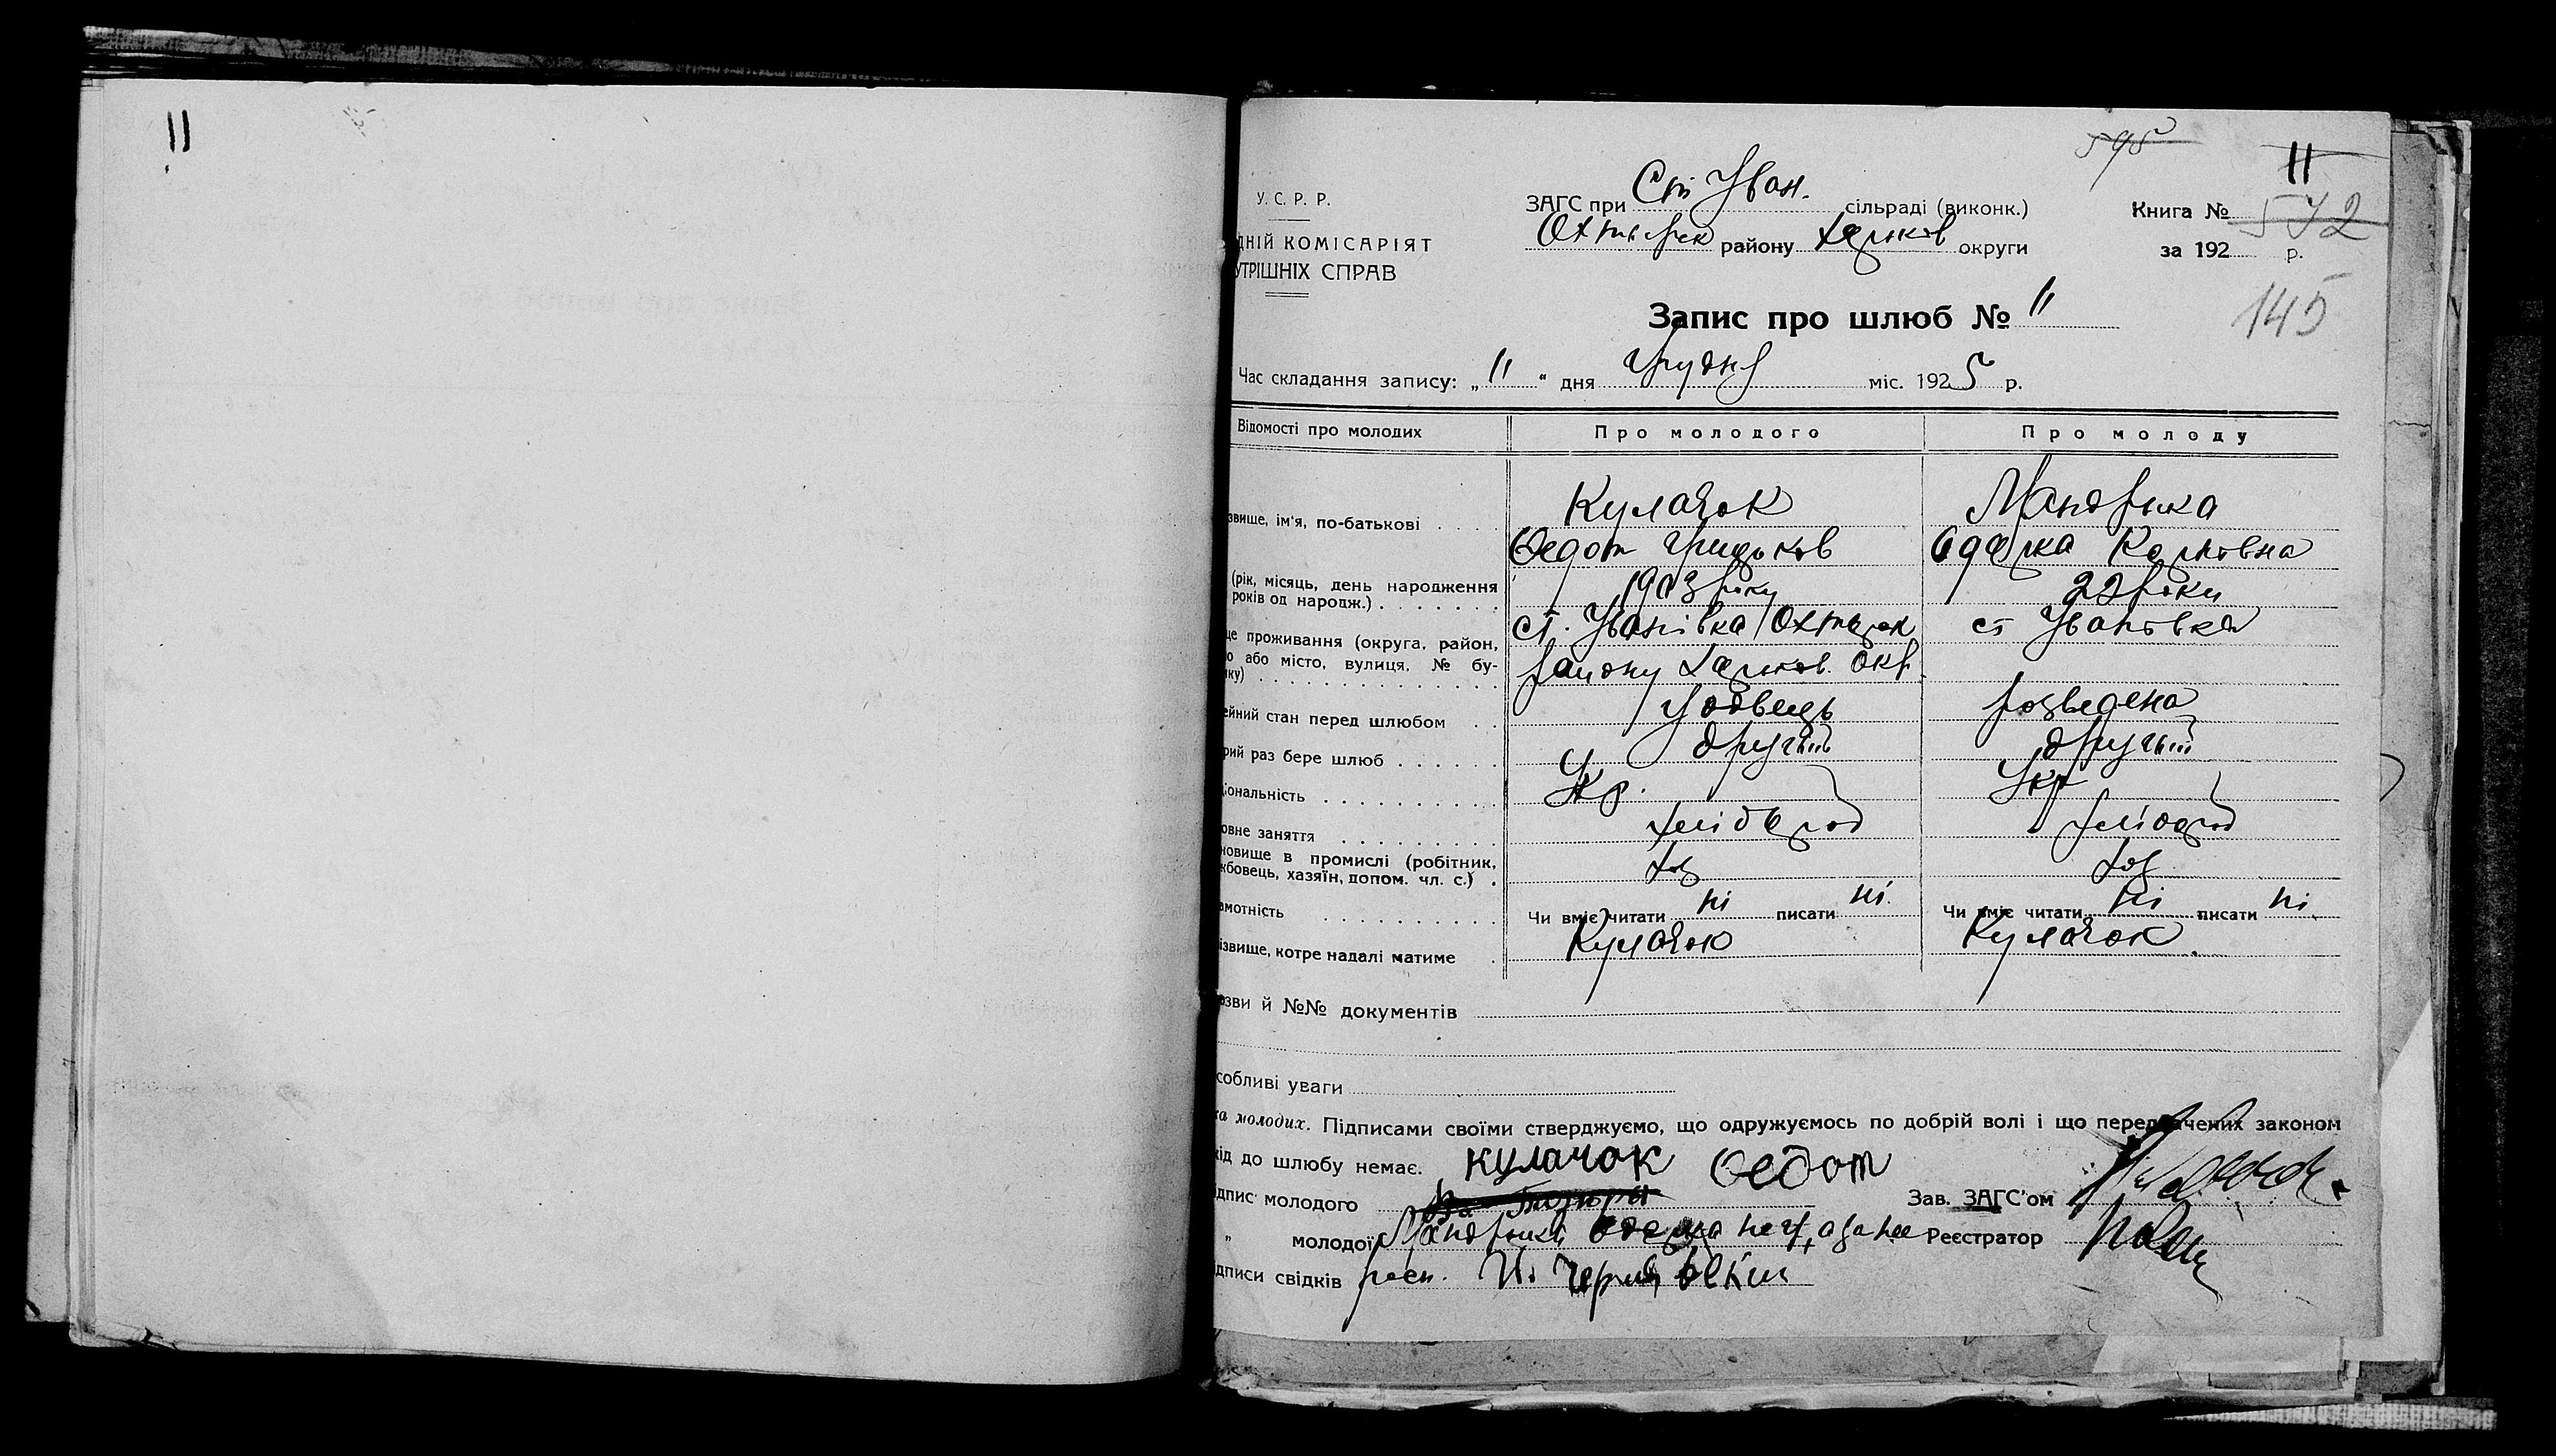 11
595
11
У. С. Р. Р.
ЗАГС при Ст Іван. сільраді (виконк.)
Книга № 572
ДНІЙ КОМІСАРІЯТ
Охтирск району Харьков округи
за 192 р.
УТРІШНІХ СПРАВ
Запис про шлюб № 11
145
Час складання запису: „ 11 “ дня Грудня міс. 1925 р.
Відомості про молодих Про молодого Про молоду
звище, ім'я, по-батькові Кулачок Мандрыка
Федот Грицьков Одарка Карповна
(рік, місяць, день народження 1903 року 22 роки
років од народж.)
це проживання (округа, район, ст. Іванівка Охтирск ст Івановка
о або місто, вулиця, № бу- району Харьков. Окр.
нку)
ейний стан перед шлюбом Удовець розведена
рий раз бере шлюб другий другий
іональність Укр. Укр
овне заняття хлібороб хлібороб
новище в промислі (робітник, Хоз Хоз
жбовець, хазяїн, допом. чл. с.)
амотність Чи вміє читати ні писати ні. Чи вміє читати ні писати ні.
ізвище, котре надалі матиме Кулачок Кулачок.
азви й №№ документів
собливі уваги
ка молодих. Підписами своїми стверджуємо, що одружуємось по добрій волі і що передбачених законом
кід до шлюбу немає. Кулачок Федот
ідпис молодого Зав. ЗАГС'ом
„ молодої Мандрыка Одарка Реєстратор
ідписи свідків